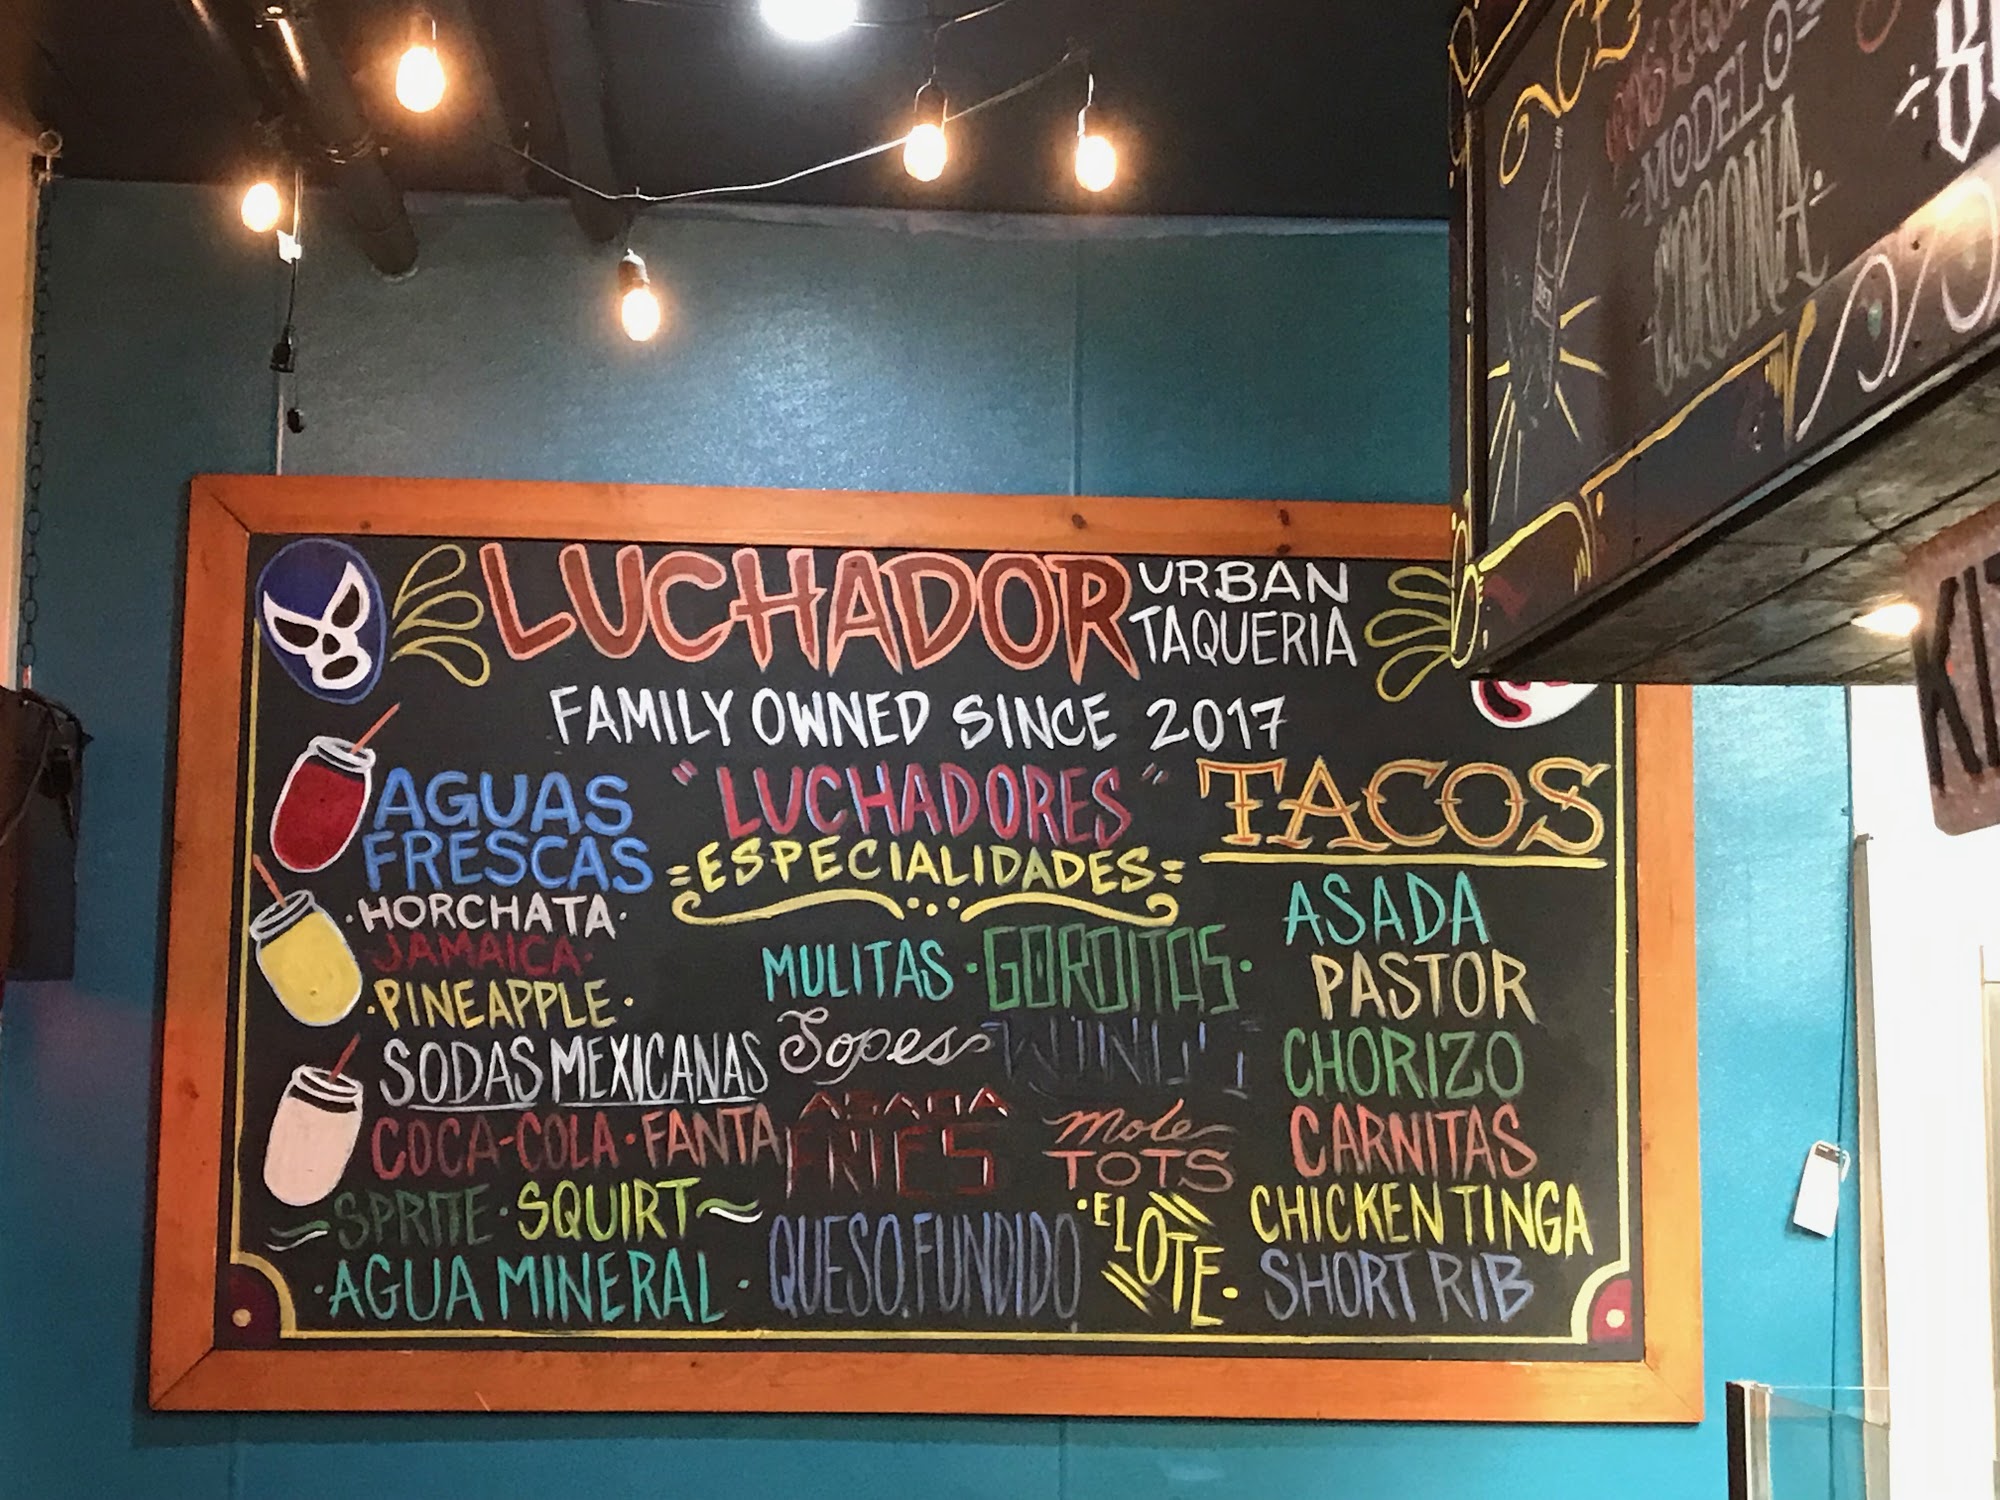 LUCHADOR URBAN
TAQUERIA
FAMILY OWNED SINCE 2017
AGUAS
FRESCAS
·HORCHATA·
JAMAICA·
·PINEAPPLE·
SODAS MEXICANAS
COCA-COLA·FANTA
SPRITE·SQUIRT
·AGUA MINERAL·
"LUCHADORES"
=ESPECIALIDADES=
MULITAS·GORDITOS·
Sopes
ASADA
FRIES
Mole
TOTS
QUESO.FUNDIDO
·ELOTE·
TACOS
ASADA
PASTOR
CHORIZO
CARNITAS
CHICKEN TINGA
SHORT RIB
MODELO
CORONA